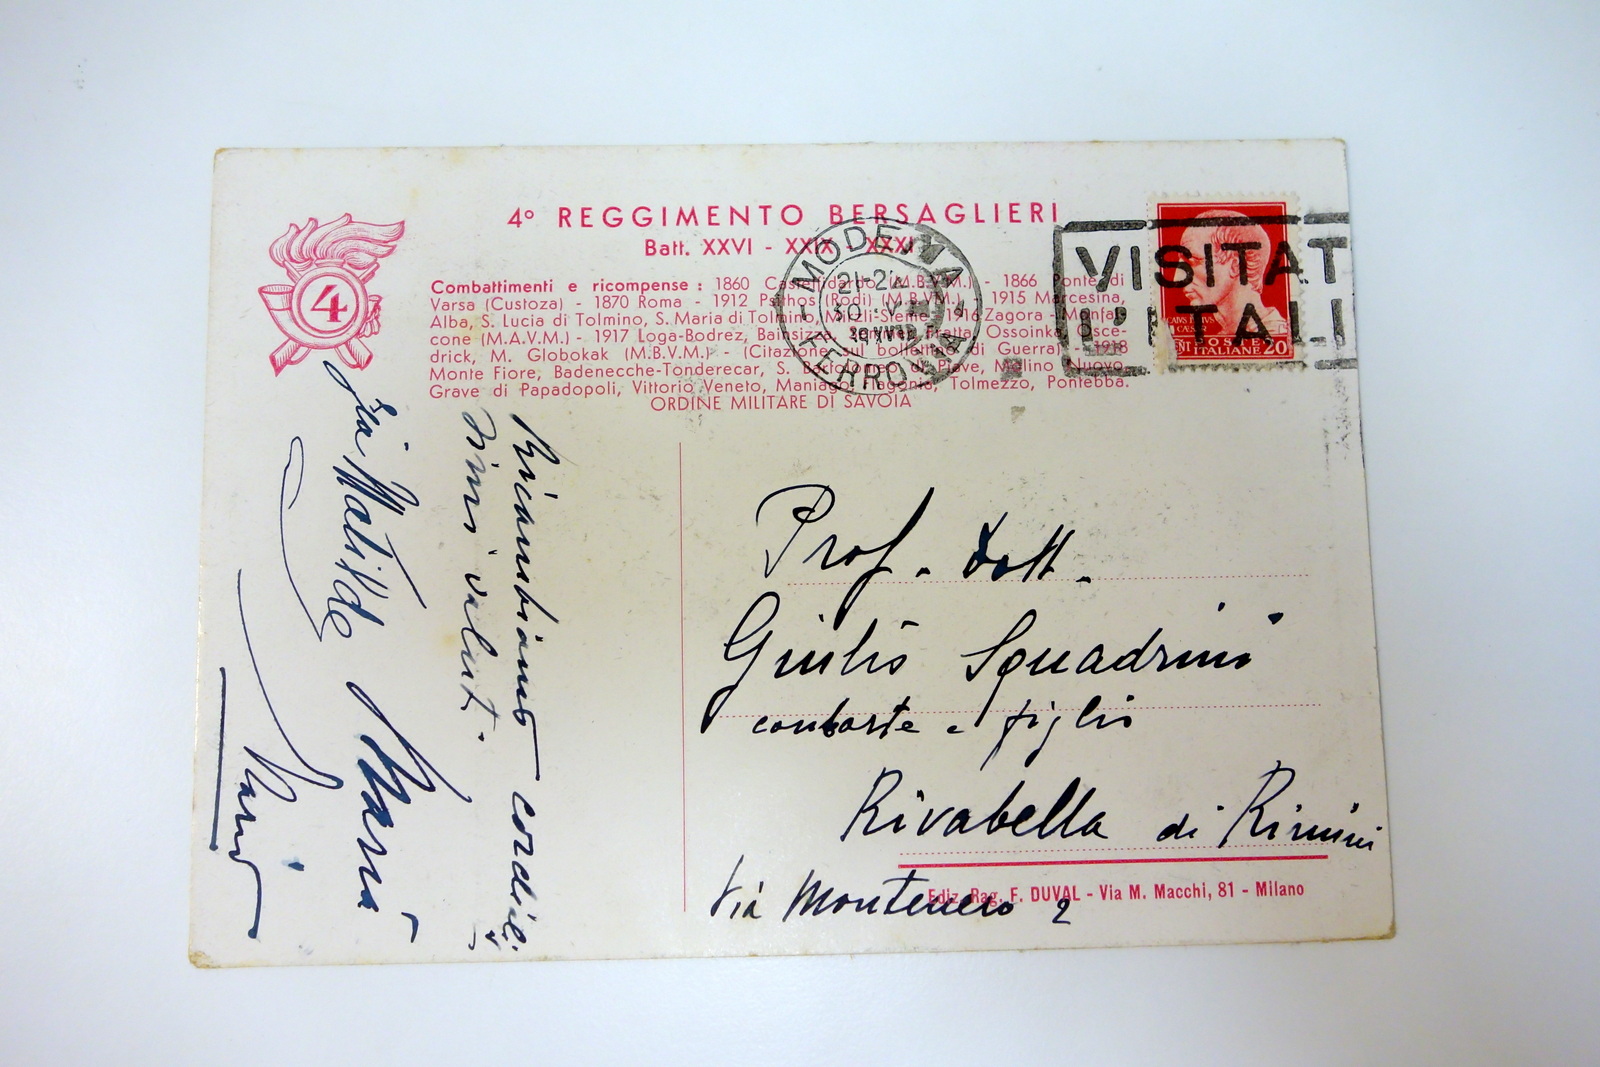 4° REGGIMENTO BERSAGLIERI
Batt. XXVI - XXIX - XXXI
4
Combattimenti e ricompense : 1860 Castelfidardo (M.B.V.M.) - 1866 Ponte di
Varsa (Custoza) - 1870 Roma - 1912 Psithos (Rodi) (M.B.V.M.) - 1915 Marcesina,
Alba, S. Lucia di Tolmino, S. Maria di Tolmino, Mirzli-Sleme - 1916 Zagora - Monfal-
cone (M.A.V.M.) - 1917 Loga-Bodrez, Bainsizza, Fratta, Ossoinka,
drick, M. Globokak (M.B.V.M.) - (Citazione sul bollettino di Guerra) - 1918
Monte Fiore, Badenecche-Tonderecar, S. Bartolomeo di Piave, Molino Nuovo,
Grave di Papadopoli, Vittorio Veneto, Maniago, Flagonia, Tolmezzo, Pontebba.
ORDINE MILITARE DI SAVOIA
MODENA
21-22
30·V
FERROVIA
VISITAT
L'ITALI
POSTE
ITALIANE 20
Ricambiamo cordiali
zia Matilde Maria
Prof. Dott.
Giulio Squadrini
consorte e figlio
Rivabella di Rimini
Via Montenero 2
Ediz. Rag. F. DUVAL - Via M. Macchi, 81 - Milano